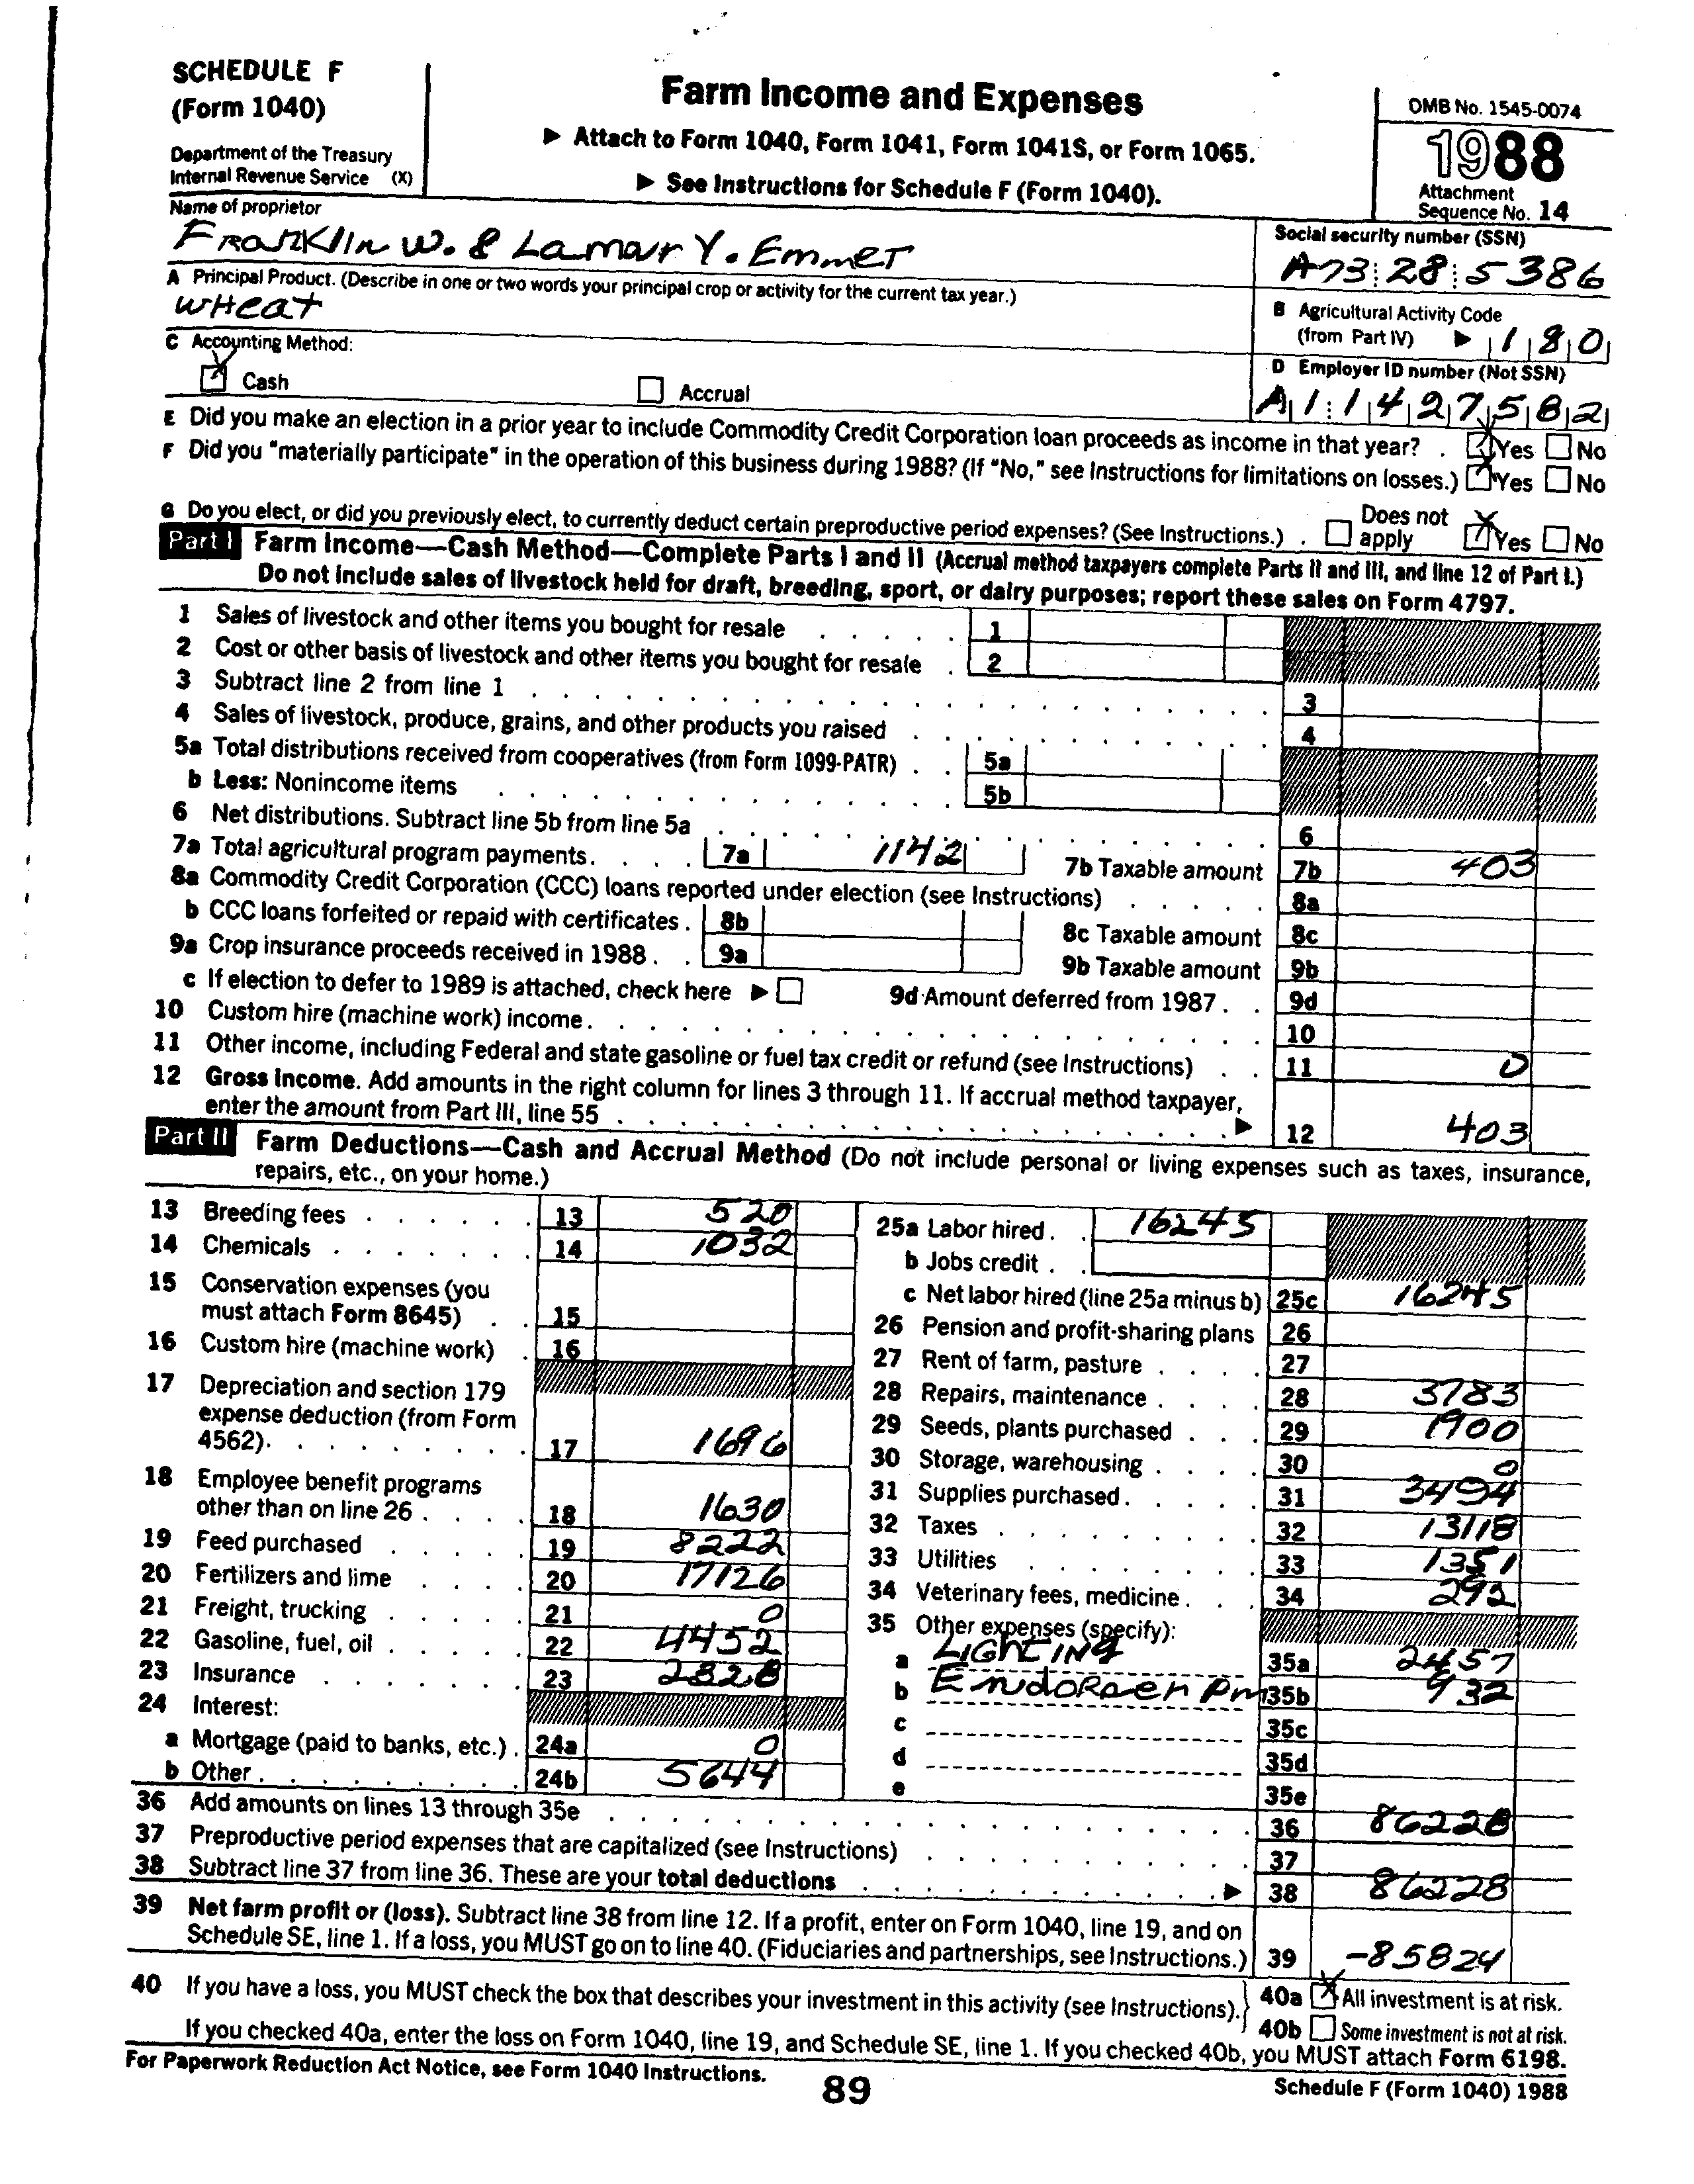 SCHEDULE F
(Form 1040)
Department of the Treasury
Internal Revenue Service (X)
Farm Income and Expenses
▶ Attach to Form 1040, Form 1041, Form 1041S, or Form 1065.
▶ See Instructions for Schedule F (Form 1040).
OMB No. 1545-0074
1988
Attachment
Sequence No. 14
Name of proprietor
Franklin W. & Lamar Y. Emmet
Social security number (SSN)
A73 28 5386
A Principal Product. (Describe in one or two words your principal crop or activity for the current tax year.)
Wheat
B Agricultural Activity Code
(from Part IV) ▶ 180
C Accounting Method:
Cash Accrual
D Employer ID number (Not SSN)
A1 1427582
E Did you make an election in a prior year to include Commodity Credit Corporation loan proceeds as income in that year? . Yes No
F Did you "materially participate" in the operation of this business during 1988? (If "No," see Instructions for limitations on losses.) Yes No
G Do you elect, or did you previously elect, to currently deduct certain preproductive period expenses? (See Instructions.) . Does not apply Yes No
Part I Farm Income—Cash Method—Complete Parts I and II (Accrual method taxpayers complete Parts II and III, and line 12 of Part I.)
Do not include sales of livestock held for draft, breeding, sport, or dairy purposes; report these sales on Form 4797.
1 Sales of livestock and other items you bought for resale 1
2 Cost or other basis of livestock and other items you bought for resale 2
3 Subtract line 2 from line 1 3
4 Sales of livestock, produce, grains, and other products you raised 4
5a Total distributions received from cooperatives (from Form 1099-PATR) 5a
b Less: Nonincome items 5b
6 Net distributions. Subtract line 5b from line 5a 6
7a Total agricultural program payments. 7a 1142 7b Taxable amount 7b 403
8a Commodity Credit Corporation (CCC) loans reported under election (see Instructions) 8a
b CCC loans forfeited or repaid with certificates . 8b 8c Taxable amount 8c
9a Crop insurance proceeds received in 1988 . 9a 9b Taxable amount 9b
c If election to defer to 1989 is attached, check here ▶ 9d Amount deferred from 1987 . 9d
10 Custom hire (machine work) income. 10
11 Other income, including Federal and state gasoline or fuel tax credit or refund (see Instructions) 11 0
12 Gross income. Add amounts in the right column for lines 3 through 11. If accrual method taxpayer,
enter the amount from Part III, line 55 ▶ 12 403
Part II Farm Deductions—Cash and Accrual Method (Do not include personal or living expenses such as taxes, insurance,
repairs, etc., on your home.)
13 Breeding fees 13 520
14 Chemicals 14 1032
15 Conservation expenses (you
must attach Form 8645) 15
16 Custom hire (machine work) 16
17 Depreciation and section 179
expense deduction (from Form
4562). 17 1696
18 Employee benefit programs
other than on line 26 18 1630
19 Feed purchased 19 8222
20 Fertilizers and lime 20 17126
21 Freight, trucking 21 0
22 Gasoline, fuel, oil 22 4452
23 Insurance 23 2828
24 Interest:
a Mortgage (paid to banks, etc.) . 24a 0
b Other 24b 5644
25a Labor hired . 16245
b Jobs credit .
c Net labor hired (line 25a minus b) 25c 16245
26 Pension and profit-sharing plans 26
27 Rent of farm, pasture 27
28 Repairs, maintenance 28 3783
29 Seeds, plants purchased 29 1900
30 Storage, warehousing 30 0
31 Supplies purchased. 31 3494
32 Taxes 32 13118
33 Utilities 33 1351
34 Veterinary fees, medicine 34 292
35 Other expenses (specify):
a Lighting 35a 2457
b 35b 932
c 35c
d 35d
e 35e
36 Add amounts on lines 13 through 35e 36 86228
37 Preproductive period expenses that are capitalized (see Instructions) 37
38 Subtract line 37 from line 36. These are your total deductions ▶ 38 86228
39 Net farm profit or (loss). Subtract line 38 from line 12. If a profit, enter on Form 1040, line 19, and on
Schedule SE, line 1. If a loss, you MUST go on to line 40. (Fiduciaries and partnerships, see Instructions.) 39 -85824
40 If you have a loss, you MUST check the box that describes your investment in this activity (see Instructions). 40a All investment is at risk.
40b Some investment is not at risk.
If you checked 40a, enter the loss on Form 1040, line 19, and Schedule SE, line 1. If you checked 40b, you MUST attach Form 6198.
For Paperwork Reduction Act Notice, see Form 1040 Instructions.
89
Schedule F (Form 1040) 1988